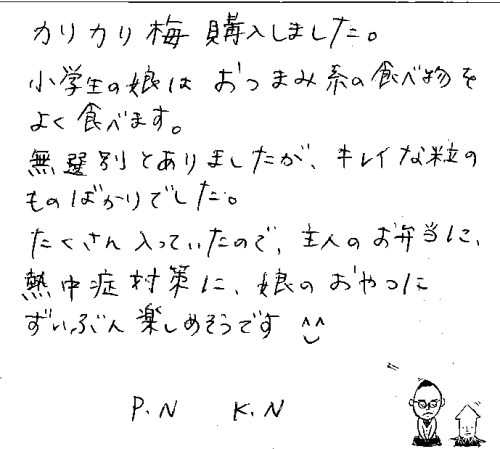 カリカリ梅 購入しました。
小学生の娘は おつまみ系の食べ物を
よく食べます。
無選別とありましたが、キレイな粒の
ものばかりでした。
たくさん入っていたので、主人のお弁当に、
熱中症対策に、娘のおやつに
ずいぶん楽しめそうです ^^
P.N K.N